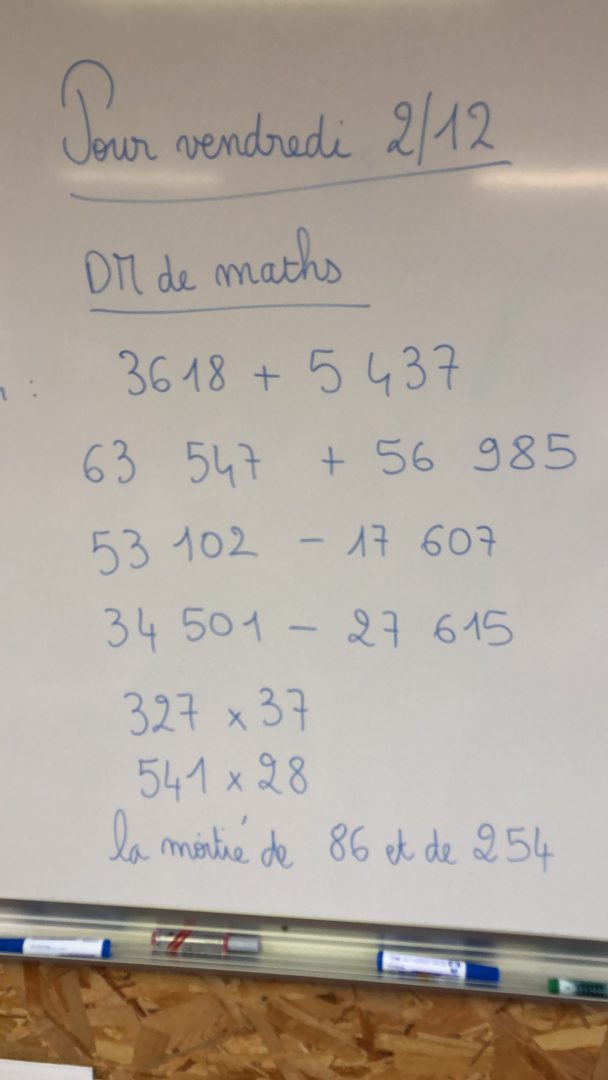 Pour vendredi 2/12
DM de maths
3618 + 5 437
63 547 + 56 985
53 102 - 17 607
34 501 - 27 615
327 x 37
541 x 28
la moitié de 86 et de 254